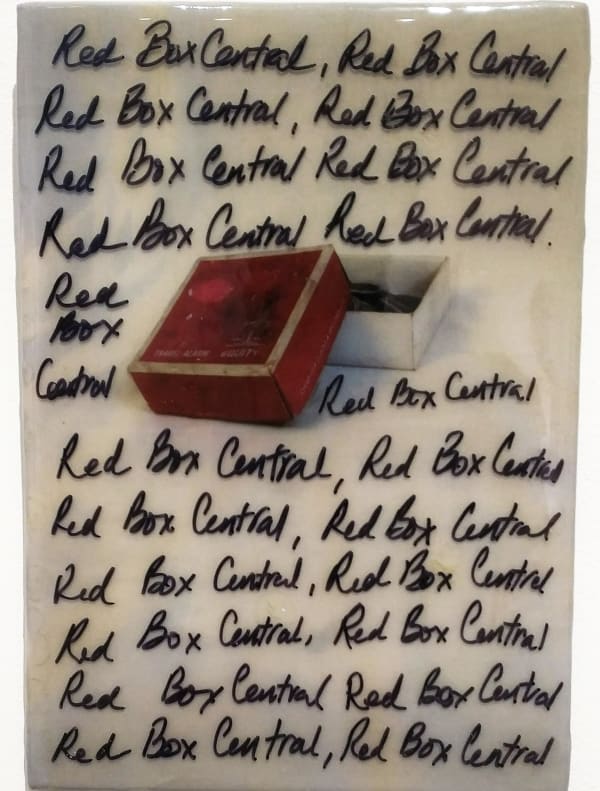 Red Box Central, Red Box Central
Red Box Central, Red Box Central
Red Box Central Red Box Central
Red Box Central Red Box Central.
Red
Box
Central
TRAVEL ALARM
Red Box Central
Red Box Central, Red Box Central
Red Box Central, Red Box Central
Red Box Central, Red Box Central
Red Box Central, Red Box Central
Red Box Central Red Box Central
Red Box Central, Red Box Central